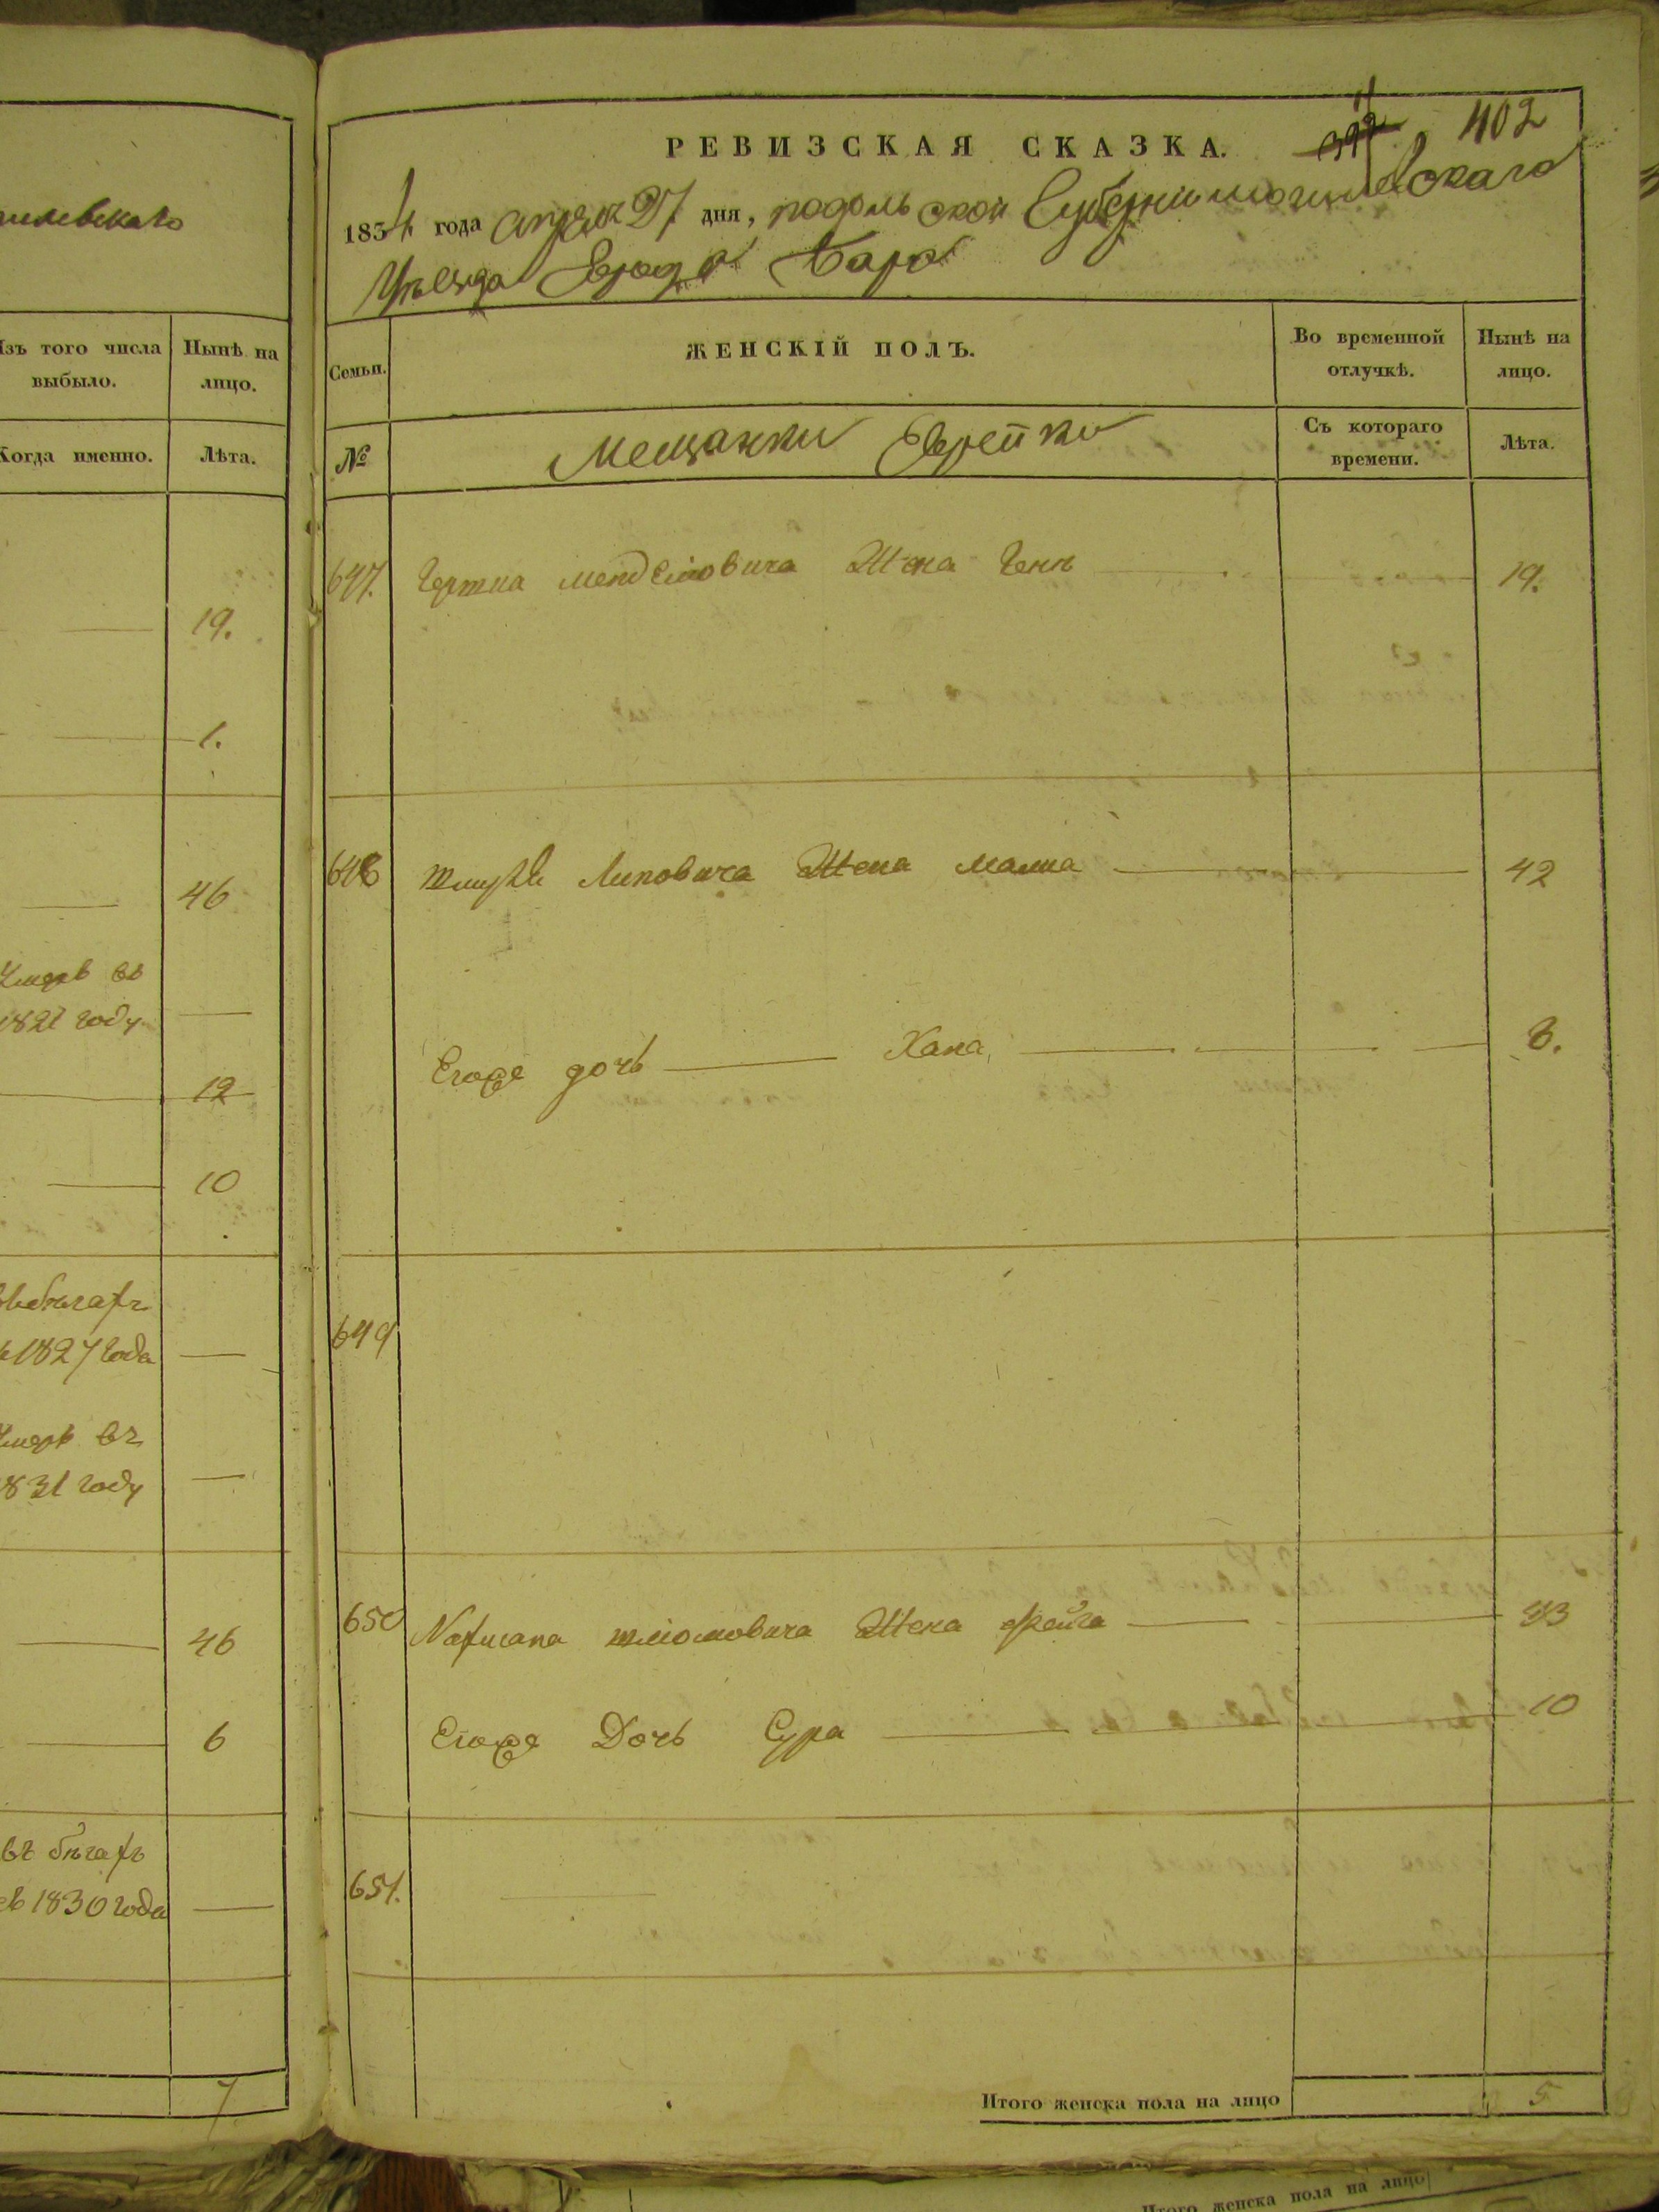 милевскаго
Изъ того числа
выбыло.
Нынѣ на
лицо.
Когда именно.
Лѣта.
19.
1.
46
Умеръ въ
1821 году.
12
10
въ бѣгахъ
1827 года
Умеръ въ
1831 году
46
6
въ бѣгахъ
1830 года
7
РЕВИЗСКАЯ СКАЗКА.
402
1834 года апреля 27 дня, подольской Губернии могилевскаго
Уѣзда Города Бара
Семьи.
ЖЕНСКІЙ ПОЛЪ.
Во временной
отлучкѣ.
Нынѣ на
лицо.
№
Мещанки Еврейки
Съ котораго
времени.
Лѣта.
647. менделіовича Жена 19.
648 Липовича Жена малка 42
Егоже дочь Хана 8.
649
650 Нафтана шліомовича Жена Фейга
Егоже Дочь Сура 10
651.
Итого женска пола на лицо 5
Итого женска пола на лицо